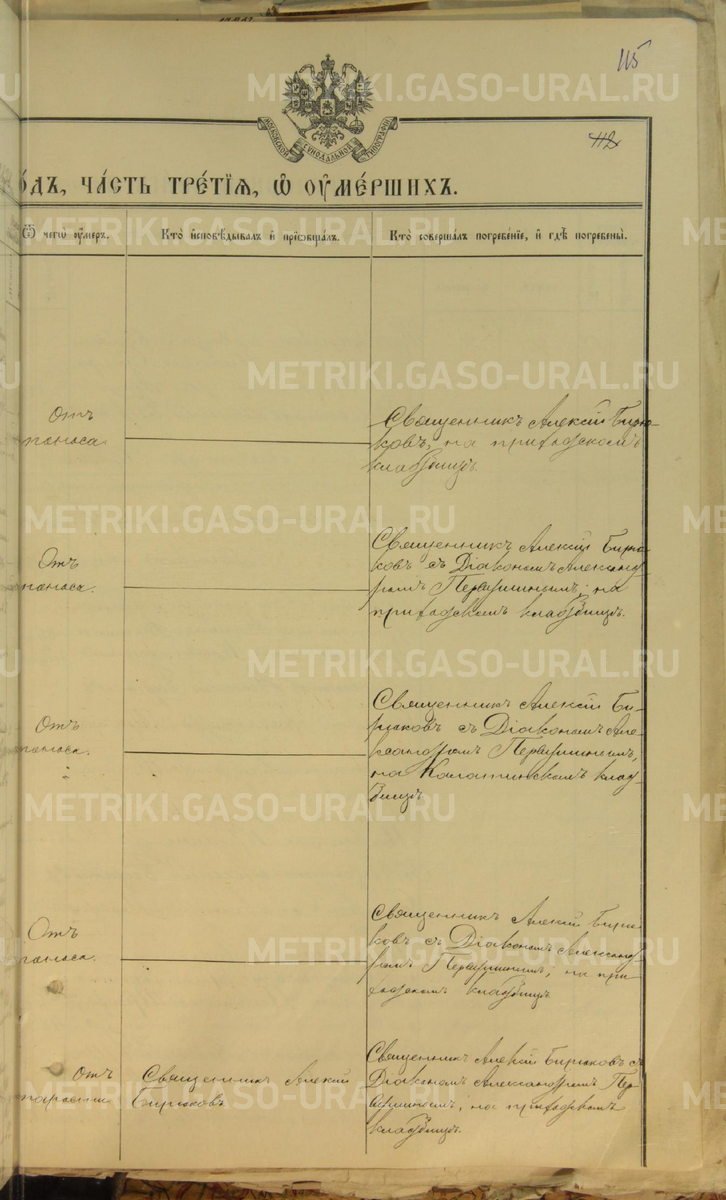 115
112
МОСКОВСКОЙ СѴНОДАЛЬНОЙ ТИПОГРАФІИ
ОДЪ, ЧАСТЬ ТРЕТІЯ, Ѿ ОУМЕРШИХЪ.
Ѿ чегѡ оумеръ.
Кто исповѣдывалъ и пріобщалъ.
Кто совершалъ погребеніе, и гдѣ погребены.
Отъ
поноса.
Священникъ Алексій Бирю-
ковъ, на приходскомъ
кладбищѣ.
Отъ
поноса.
Священникъ Алексій Бирю-
ковъ съ Діакономъ Александ-
ромъ Первушинымъ, на
приходскомъ кладбищѣ.
Отъ
поноса.
Священникъ Алексій Би-
рюковъ съ Діакономъ Але-
ксандромъ Первушинымъ,
на Калатинскомъ клад-
бищѣ
Отъ
поноса.
Священникъ Алексій Бирю-
ковъ съ Діакономъ Александ-
ромъ Первушинымъ, на при-
ходскомъ кладбищѣ
Отъ
Священникъ Алексій
Бирюковъ
Священникъ Алексій Бирюковъ съ
Діакономъ Александромъ Пер-
вушинымъ, на приходскомъ
кладбищѣ.
METRIKI.GASO-URAL.RU